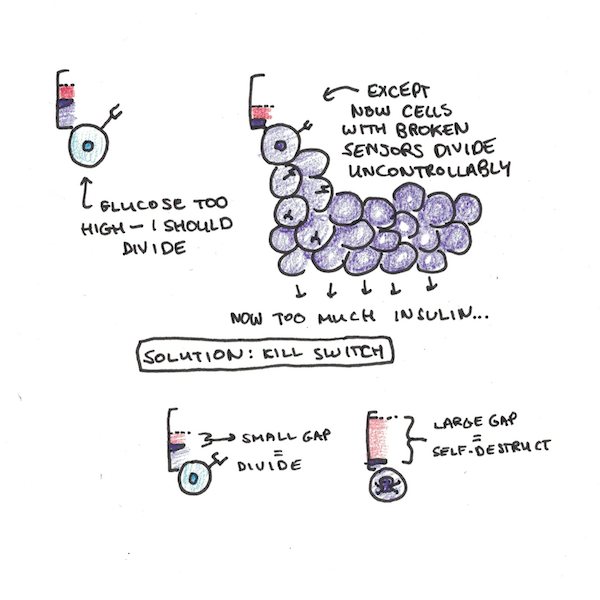 GLUCOSE TOO
HIGH – I SHOULD
DIVIDE
EXCEPT
NOW CELLS
WITH BROKEN
SENSORS DIVIDE
UNCONTROLLABLY
NOW TOO MUCH INSULIN...
SOLUTION: KILL SWITCH
SMALL GAP
=
DIVIDE
LARGE GAP
=
SELF-DESTRUCT